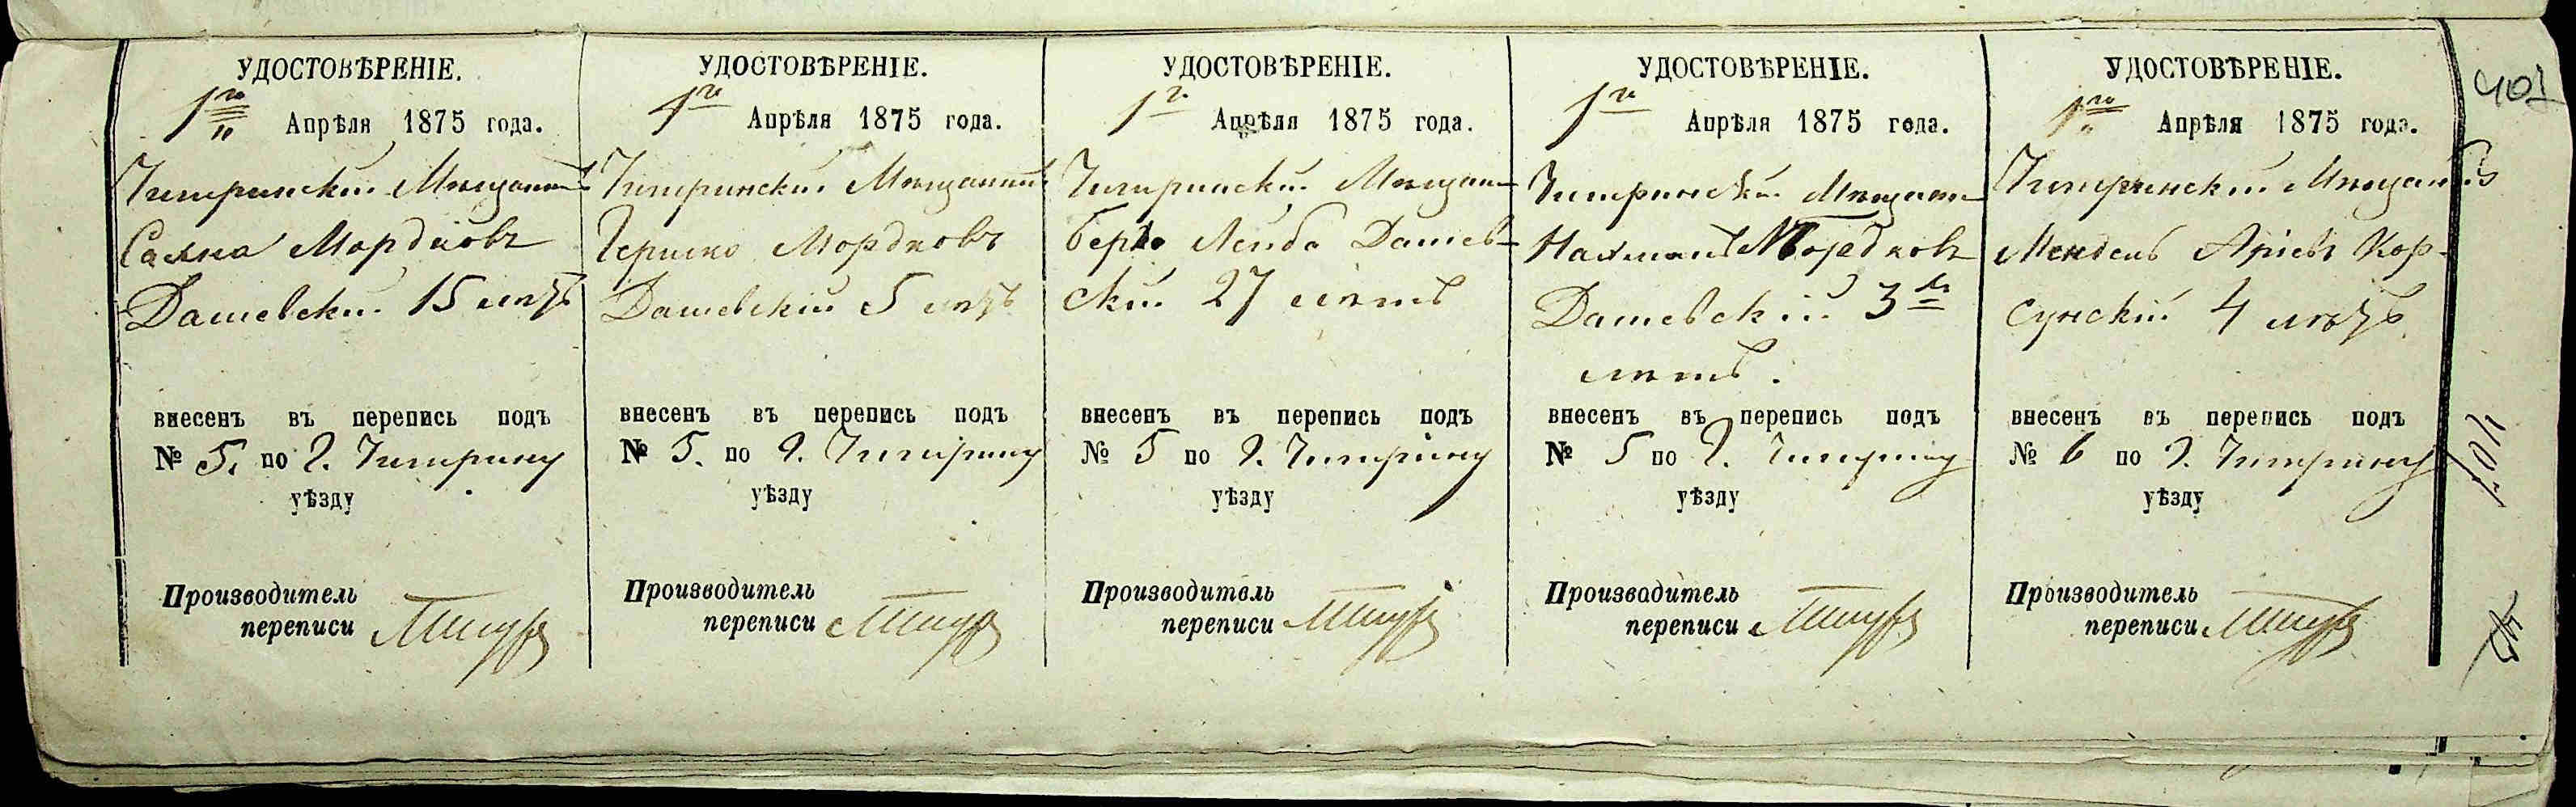 УДОСТОВѢРЕНІЕ.
1го Апрѣля 1875 года.
Чигиринскій Мѣщанинъ
Мордковъ
Дашевскій 15 лѣтъ
внесенъ въ перепись подъ
№ 5. по г. Чигирину
уѣзду
Производитель
переписи
УДОСТОВѢРЕНІЕ.
1го Апрѣля 1875 года.
Чигиринскій Мѣщанинъ
Гершко Мордковъ
Дашевскій 5 лѣтъ
внесенъ въ перепись подъ
№ 5. по г. Чигирину
уѣзду
Производитель
переписи
УДОСТОВѢРЕНІЕ.
1го Апрѣля 1875 года.
Чигиринскій Мѣщани
Берко Лейба Дашев-
скій 27 лѣтъ
внесенъ въ перепись подъ
№ 5 по г. Чигирину
уѣзду
Производитель
переписи
УДОСТОВѢРЕНІЕ.
1го Апрѣля 1875 года.
Чигиринскій Мѣщани
Нахманъ Мордковъ
Дашевскій 3хъ
лѣтъ.
внесенъ въ перепись подъ
№ 5 по г. Чигирину
уѣзду
Производитель
переписи
УДОСТОВѢРЕНІЕ.
1го Апрѣля 1875 года.
Чигиринскій Мѣщанинъ
Мендель Аріевъ Кор-
сунскій 4 лѣтъ
внесенъ въ перепись подъ
№ 6 по г. Чигирину
уѣзду
Производитель
переписи
401
401